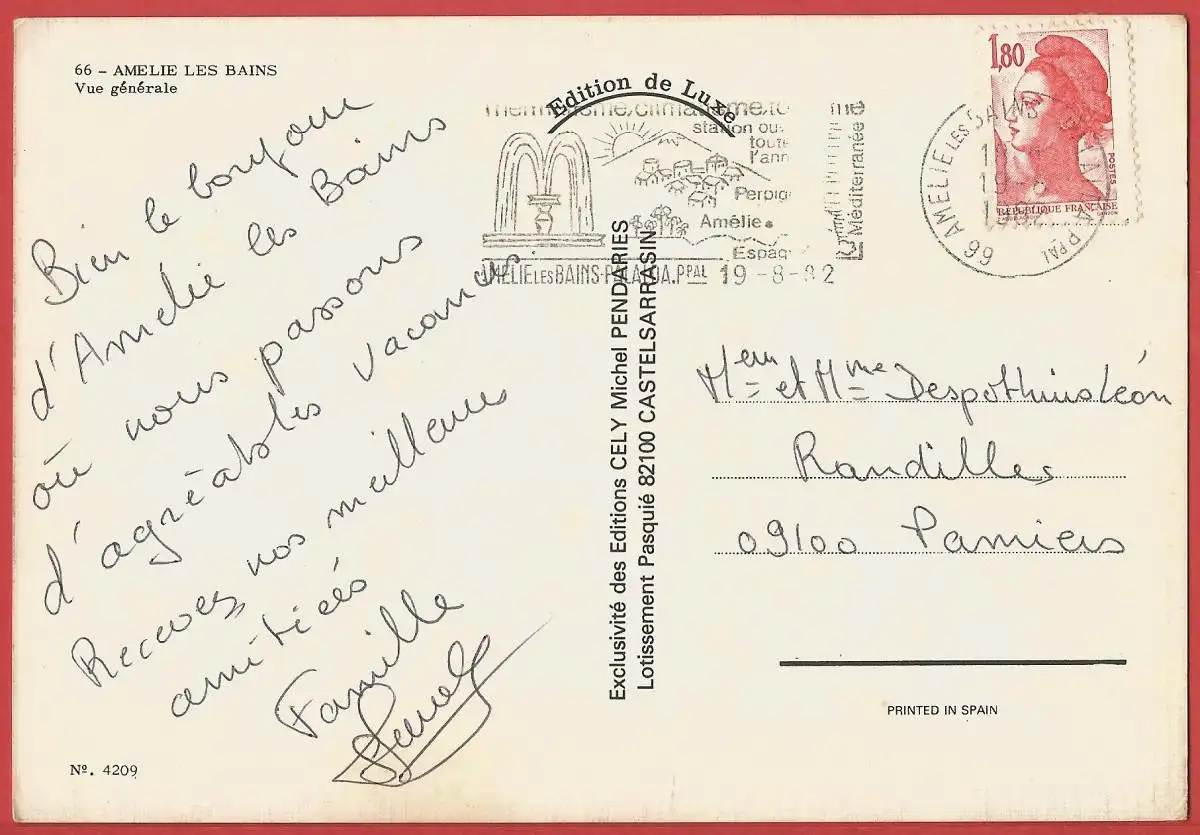 66 - AMELIE LES BAINS
Vue générale
Bien le bonjour
d'Amelie les Bains
où nous passons
d'agréables vacances.
Recevez nos meilleures
amitiés
Famille
Nº. 4209
Edition de Luxe
thermalisme, climatisme, to me
station ou
toute
l'ann
Perpig
Amélie
Espag
Méditerranée
AMELIE LES BAINS-PALALDA.PPAL 19-8-82
Exclusivité des Editions CELY Michel PENDARIES
Lotissement Pasquié 82100 CASTELSARRASIN
1,80
POSTES
RÉPUBLIQUE FRANÇAISE
66 AMELIE LES BAINS PPAL
et Mme Despothuis Léon
Randilles
09100 Pamiers
PRINTED IN SPAIN